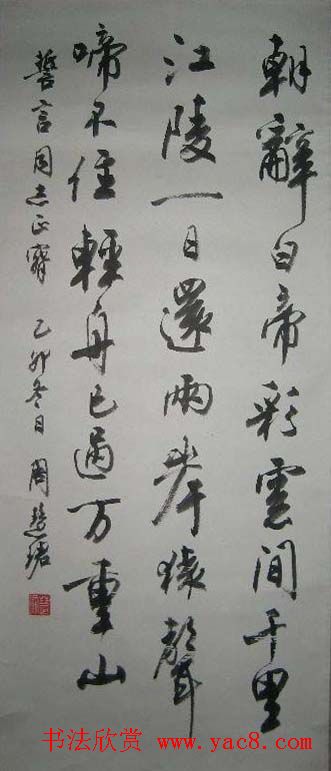 朝辭白帝彩雲間千里
江陵一日還兩岸猿聲
啼不住輕舟已過万重山
誓言同志正腕 乙卯冬日 周慧珺
书法欣赏 www.yac8.com